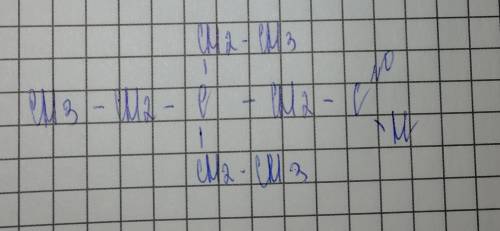 CH2-CH3
CH3 - CH2 - C - CH2 - C
O
H
CH2-CH3